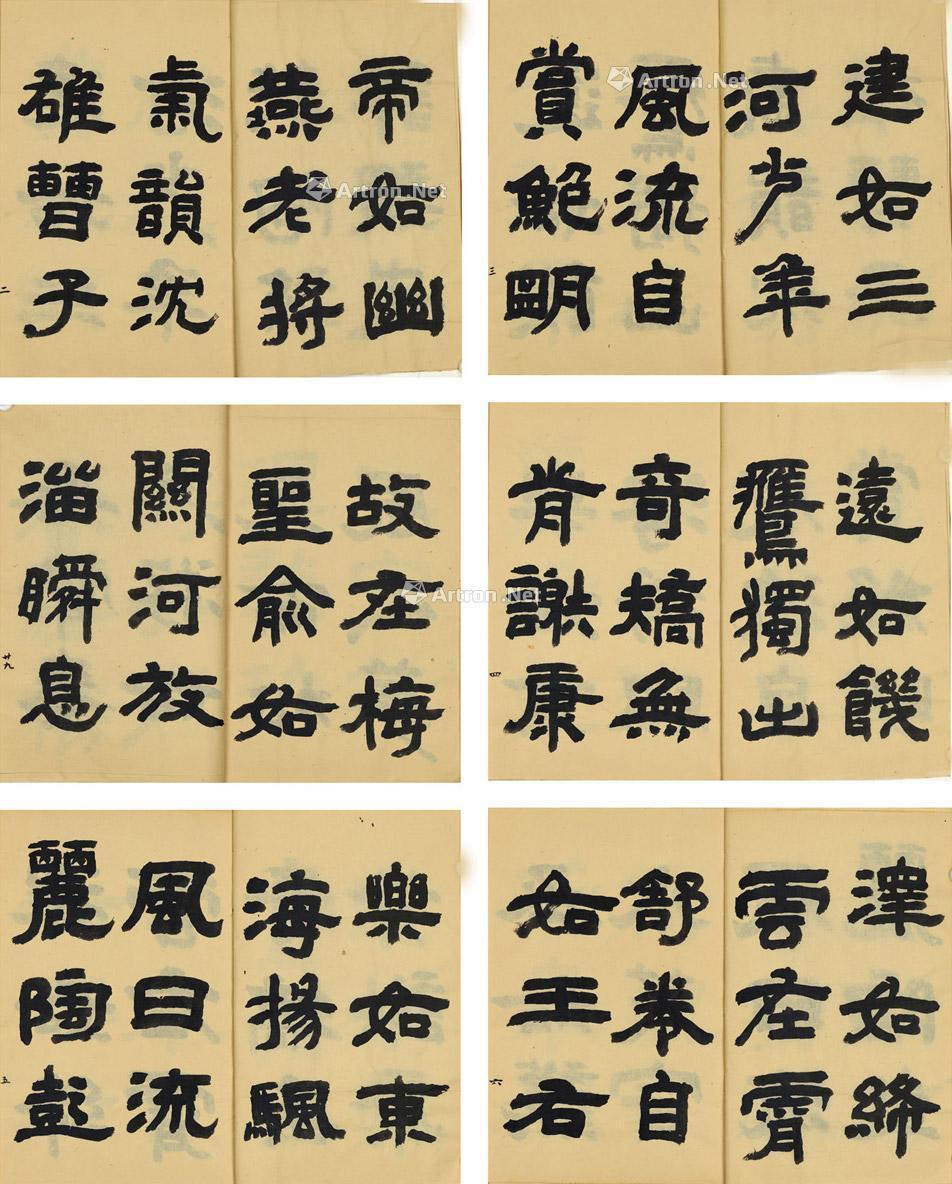 帝如幽
燕老將
氣韻沈
雄曹子
二
建如三
河少年
風流自
賞鮑明
三
故在梅
聖俞如
關河放
溜瞬息
廿九
遠如饑
鷹獨出
奇矯無
前謝康
四
樂如東
海揚颿
風日流
麗陶彭
五
澤如絳
雲在霄
舒卷自
如王右
六
Artron.Net
Artron.Net
Artron.Net